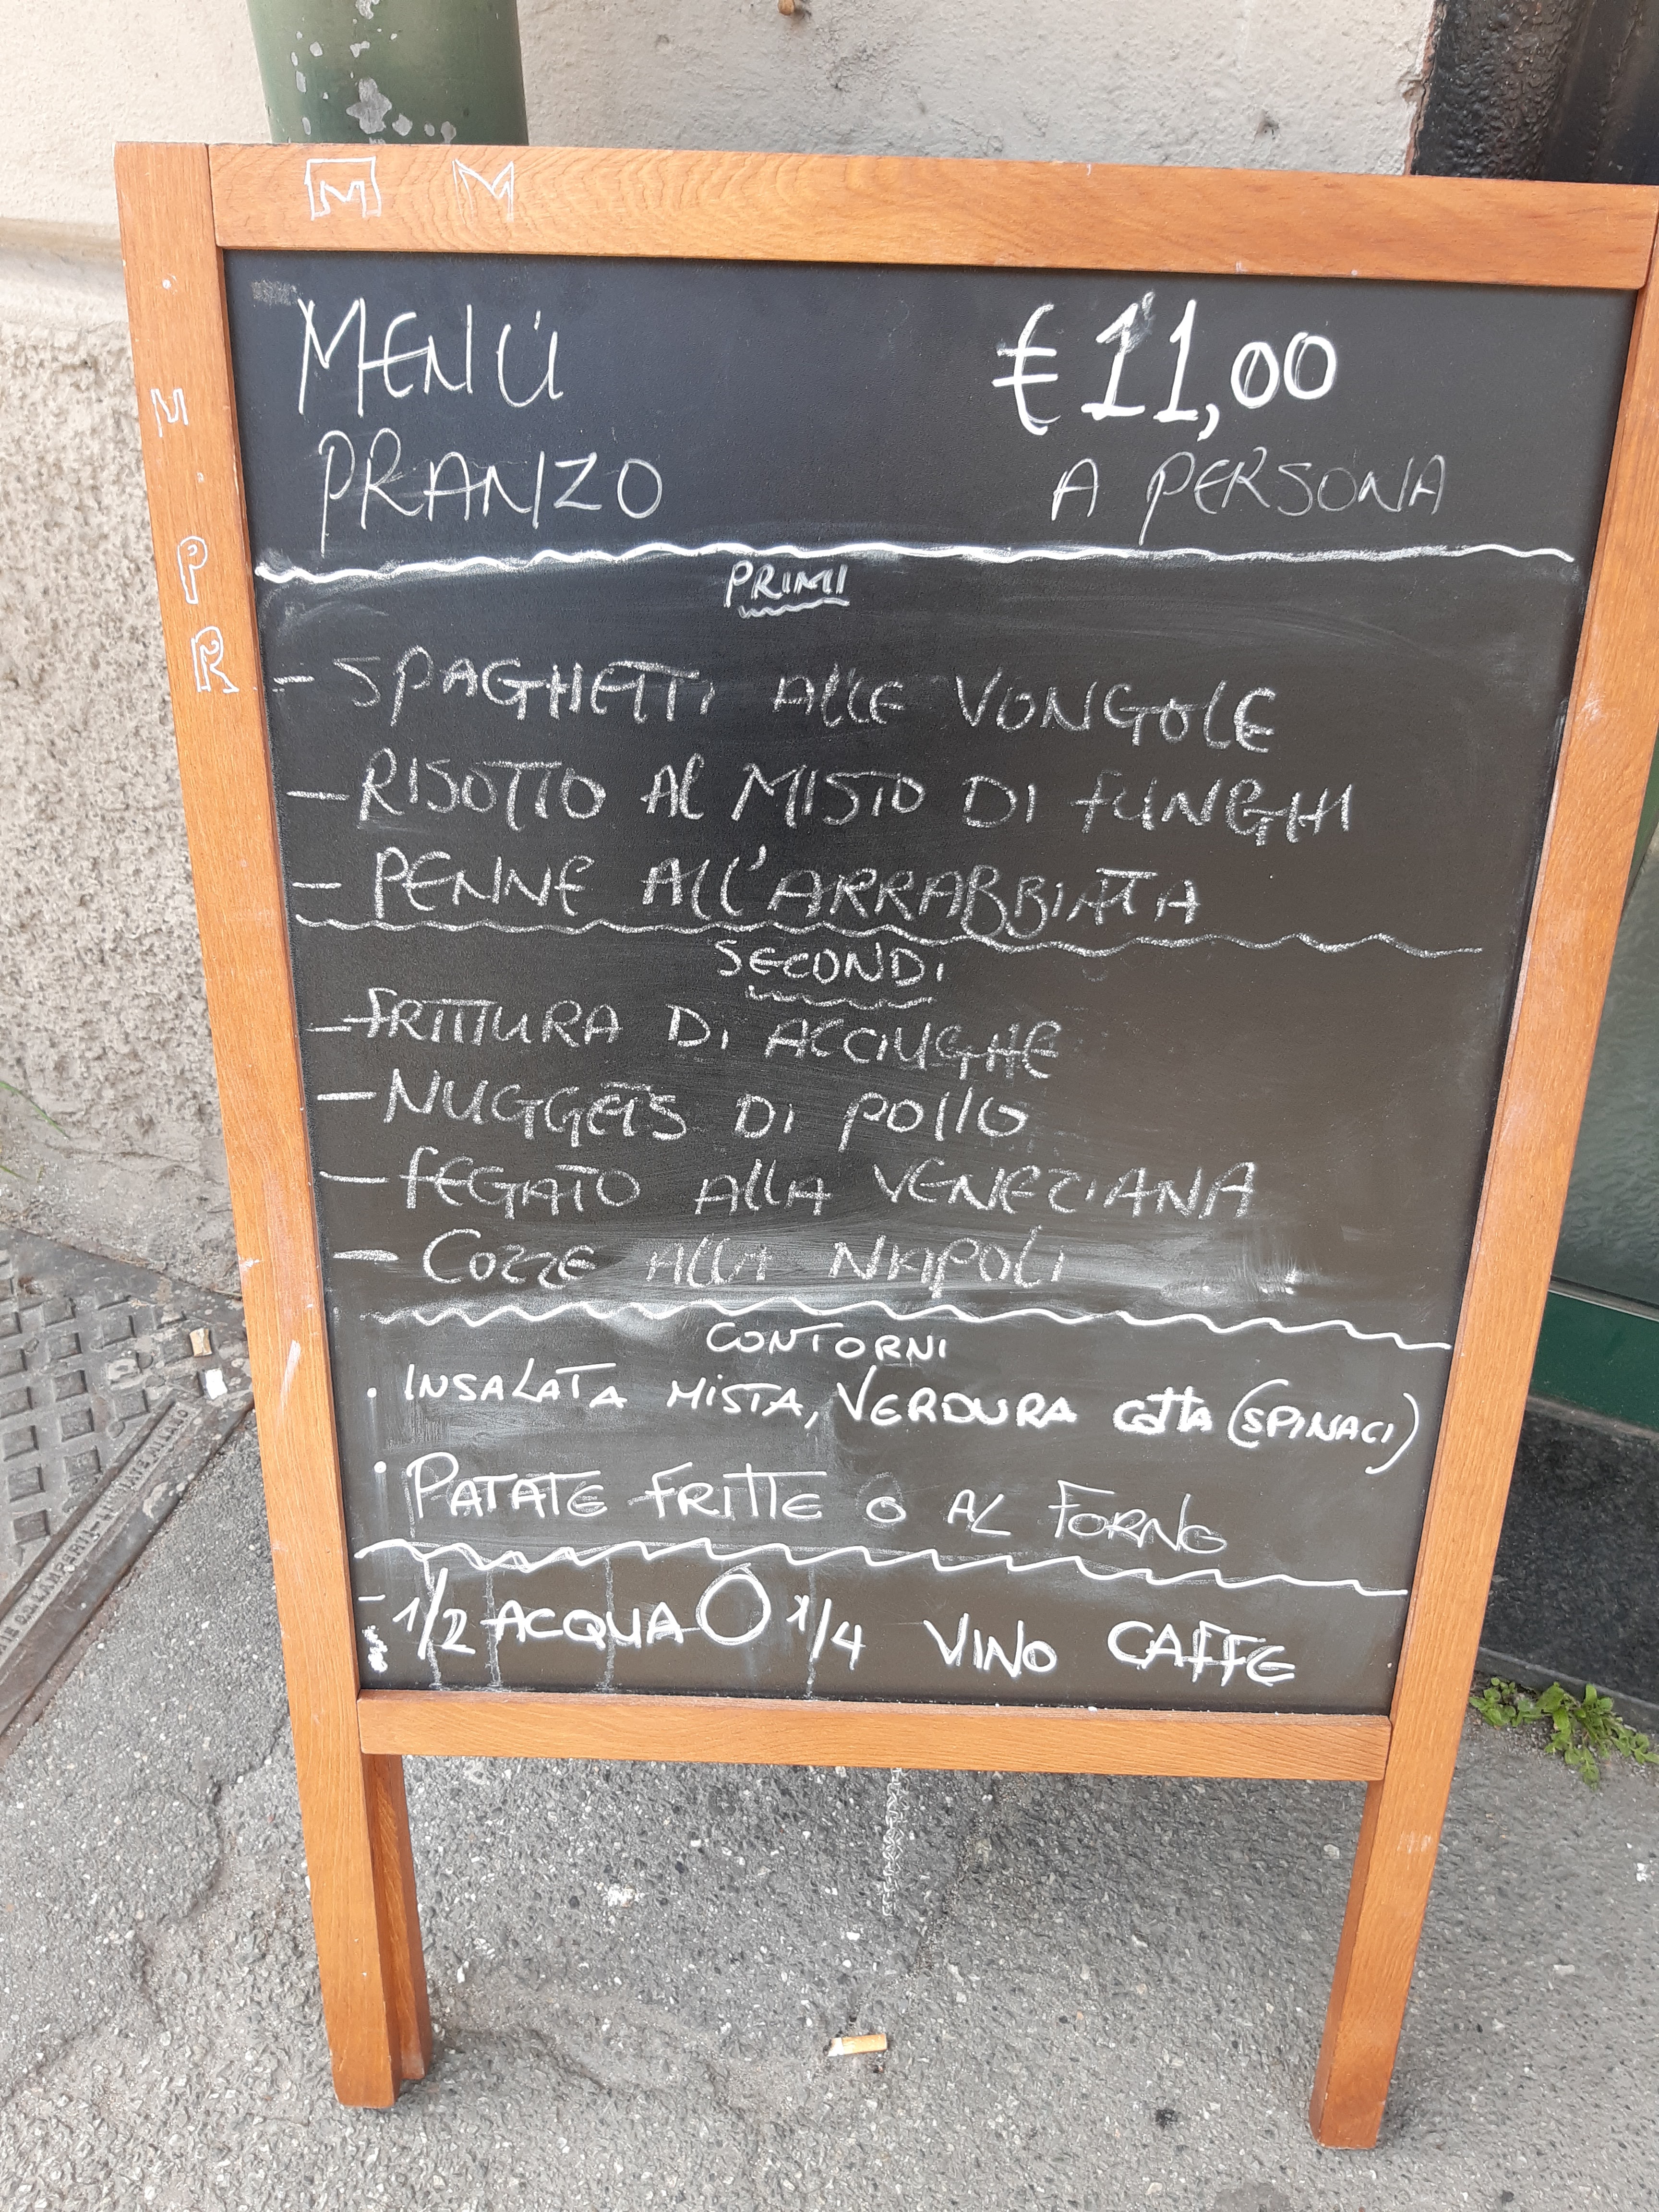 M M
M
P
R
MENÚ € 11,00
PRANZO A PERSONA
PRIMI
- SPAGHETTI AllE VONGOLE
- RISOTTO Al MISTO DI fUNGHI
- PENNE All'ARRABBIATA
SECONDI
- fRITTURA Di ACCIUGHE
- NUGGETS DI POllO
- fEGATO AllA VENEZIANA
- COZZE AllA NAPOLi
CONTORNI
. INSALATA MISTA, VERDURA COttA (SPINACI)
. PATATE FRITTE O AL FORNO
- 1/2 ACQUA O 1/4 VINO CAFFE